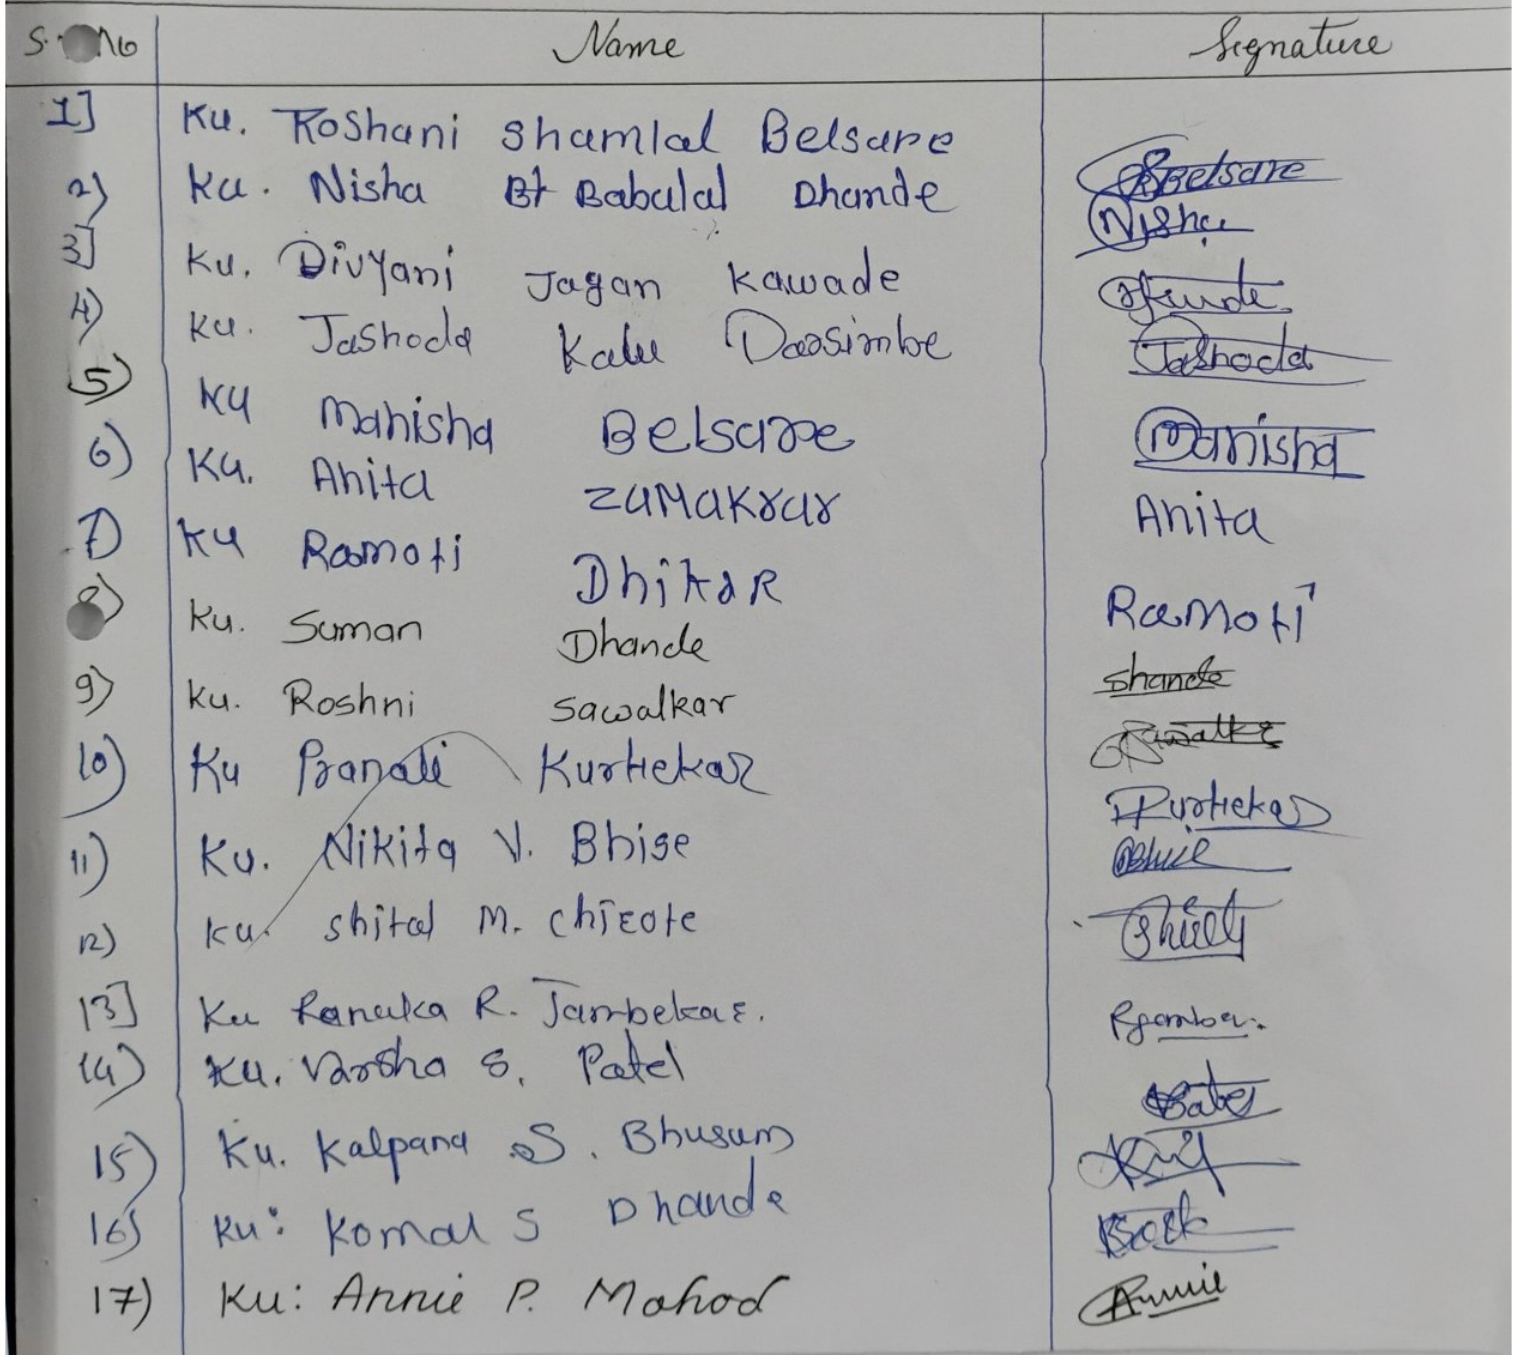 S. No Name Signature
1] Ku. Roshani Shamlal Belsare Belsare
2) Ku. Nisha Bt Babulal Dhande Nisha
3] Ku. Divyani Jagan Kawade
4) Ku. Jashoda Kalu Darsimbe Jashoda
5) Ku Manisha Belsare Manisha
6) Ku. Anita Zamakrar Anita
7) Ku Ramoti Dhikar Ramoti
8) Ku. Suman Dhande Shande
9) Ku. Roshni Sawalkar
10) Ku Pranali Kurhekar PKurhekar
11) Ku. Nikita V. Bhise
12) Ku. Shital M. Chicote
13] Ku Ranuka R. Jambekar.
14) Ku. Varsha S. Patel
15) Ku. Kalpana S. Bhusum
16) Ku: Komal S Dhande
17) Ku: Annie P. Mahod Annie